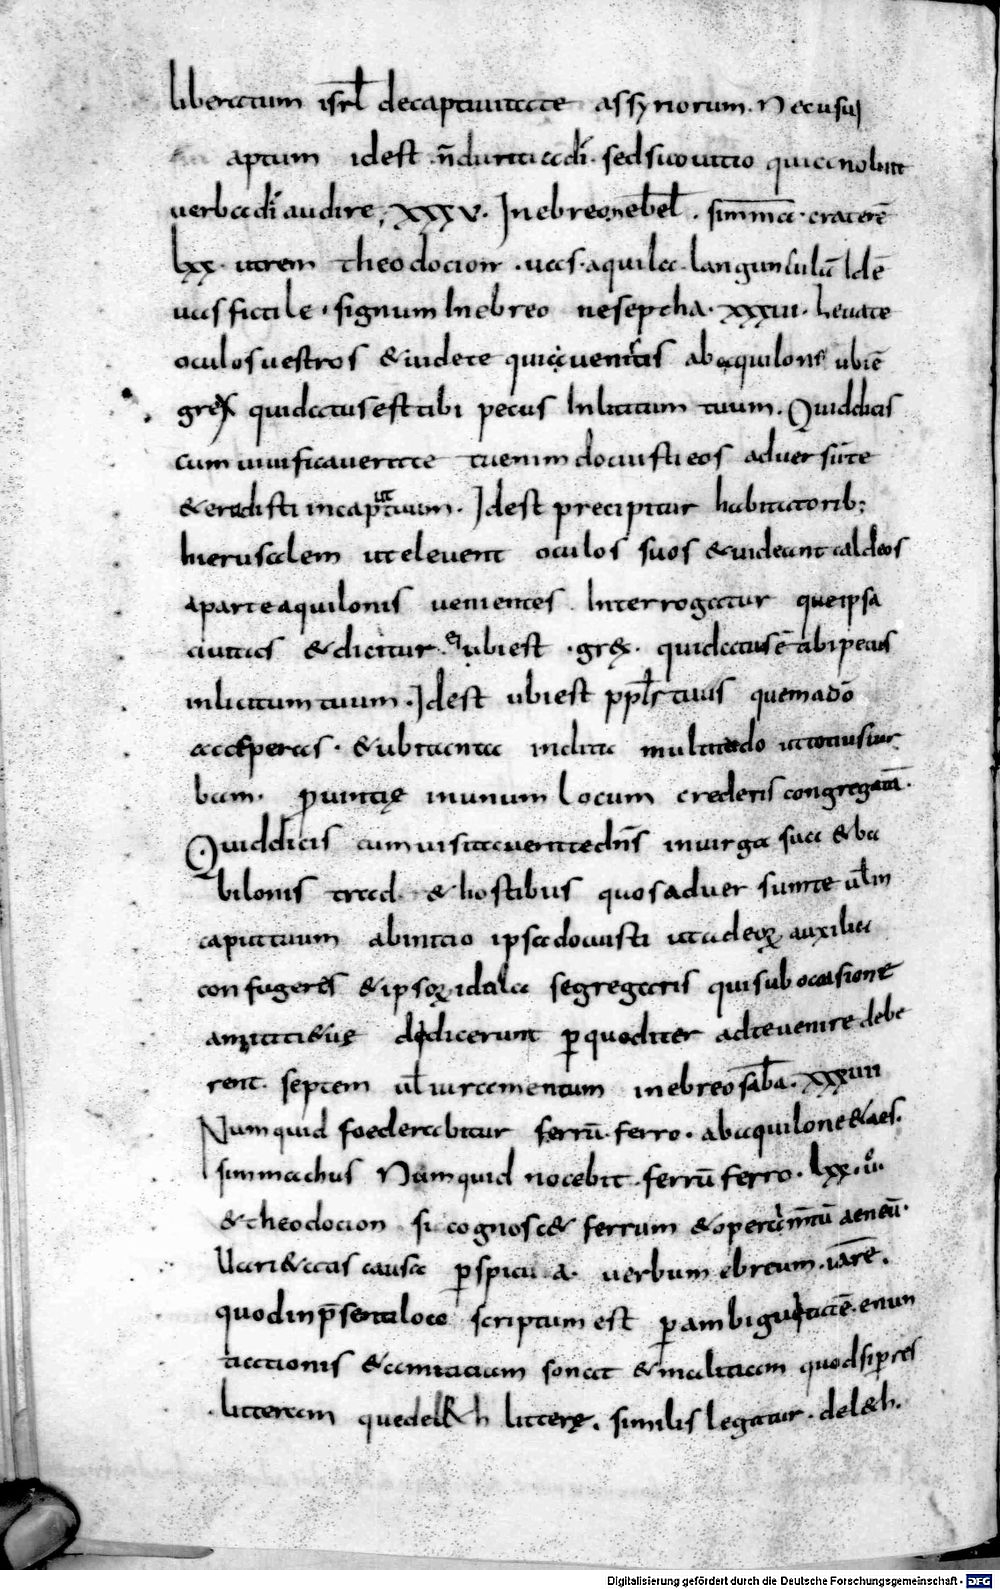 liberatum isrl decaptiuitate assyriorum. Nec usui
aptum idest n̄ duritia di. sed suo uitio qui ca nobat
uerba di audire; XXXV. In ebreo nebel. simmac. craterē
lxx. utrem theodocion. uas. aquila. langunculā Idē
uas fictile. signum In ebreo nesepcha. XXXVI. Leuate
oculos uestros & uidete qui aduenitis ab aquilone ubi ē
grex qui datus est tibi pecus Inlitum tuum. Quid dicis
cum uiuificauerit te tu enim docuisti eos aduersū te
& erudisti in caput tuum. Idest precipitur habitatorib;
hierusalem ut eleuent oculos suos & uideant caldeos
aparte aquilonis uenientes. Interrogatur que ipsa
ciuitas & dicitur ei ubi est. grex. qui datus ē tibi pecus
inlicitum tuum. Idest ubi est ppls tuus quem adō
acceperas. & ubi tanta inclita multitudo ut totius iur
bam. ꝓuintię in unum locum crederis congregatā.
Quid dicis cum uisitauerit te dn̄s in uirga sua & ba
bilonis trad. & hostibus quos aduersum te ul in
caput tuum ab initio ipsa docuisti ut ad eoꝝ auxilia
confugeres & ipsoꝝ idola segregaris qui sub occasione
amititi&uę dedicerunt ꝑ quod iter ad te uenire debe
rent. septem ul iuramentum in ebreo saba. XXXVII
Numquid foederabitur ferrū. ferro. ab aquilone & aes.
simmachus Namquid nocebit. ferrū ferro. lxx. u.
& theodocion si cognosc& ferrum & opertimtū aeneū.
Uari&atis causa ꝑspicua. uerbum ebreum. iare.
quod in p̄senti loco scriptum est ꝑ ambiguitatē. enun
tiationis & amicitiam sonat & malitiam quod si ꝑ res
litteram que del&h litterę. similis legatur. del&h.
Digitalisierung gefördert durch die Deutsche Forschungsgemeinschaft - DFG